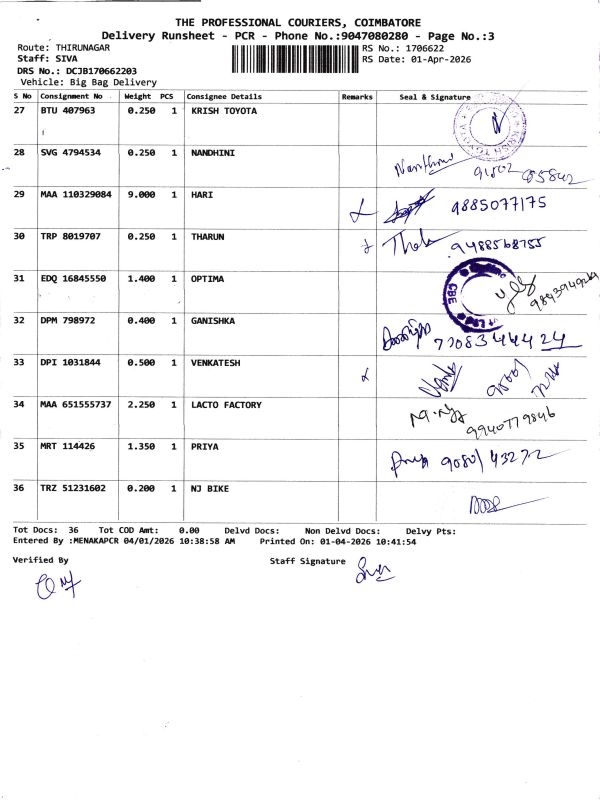 THE PROFESSIONAL COURIERS, COIMBATORE
Delivery Runsheet - PCR - Phone No.:9047080280 - Page No.:3
Route: THIRUNAGAR RS No.: 1706622
Staff: SIVA RS Date: 01-Apr-2026
DRS No.: DCJB170662203
Vehicle: Big Bag Delivery
S No Consignment No Weight PCS Consignee Details Remarks Seal & Signature
27 BTU 407963 0.250 1 KRISH TOYOTA
28 SVG 4794534 0.250 1 NANDHINI
29 MAA 110329084 9.000 1 HARI 9885077175
30 TRP 8019707 0.250 1 THARUN 9488568755
31 EDQ 16845550 1.400 1 OPTIMA CBE
32 DPM 798972 0.400 1 GANISHKA 7708344424
33 DPI 1031844 0.500 1 VENKATESH
34 MAA 651555737 2.250 1 LACTO FACTORY 9940779846
35 MRT 114426 1.350 1 PRIYA Priya
36 TRZ 51231602 0.200 1 NJ BIKE
Tot Docs: 36 Tot COD Amt: 0.00 Delvd Docs: Non Delvd Docs: Delvy Pts:
Entered By :MENAKAPCR 04/01/2026 10:38:58 AM Printed On: 01-04-2026 10:41:54
Verified By Staff Signature